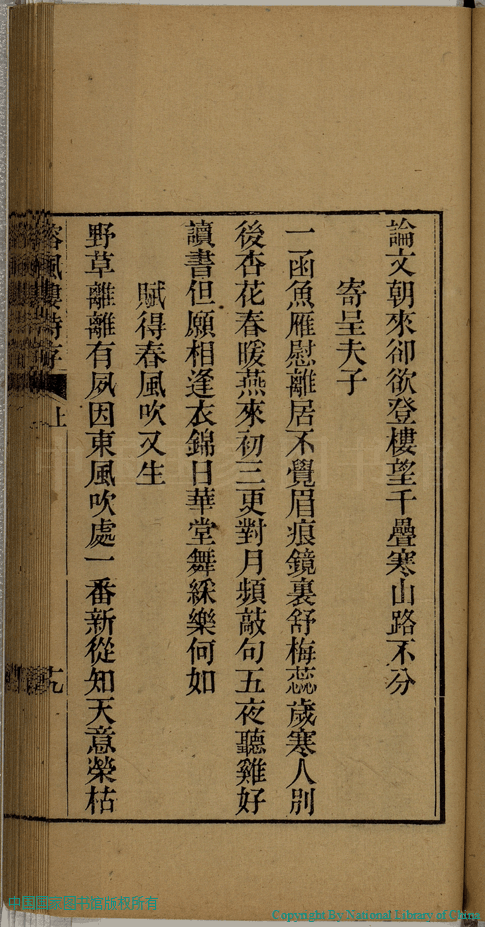 論文朝來卻欲登樓望千疊寒山路不分
寄呈夫子
一函魚雁慰離居不覺眉痕鏡裏舒梅蕊歲寒人別
後杏花春暖燕來初三更對月頻敲句五夜聽雞好
讀書但願相逢衣錦日華堂舞綵樂何如
賦得春風吹又生
野草離離有夙因東風吹處一番新從知天意榮枯
風樓詩存
上
十九
中国国家图书馆版权所有
Copyright By National Library of China